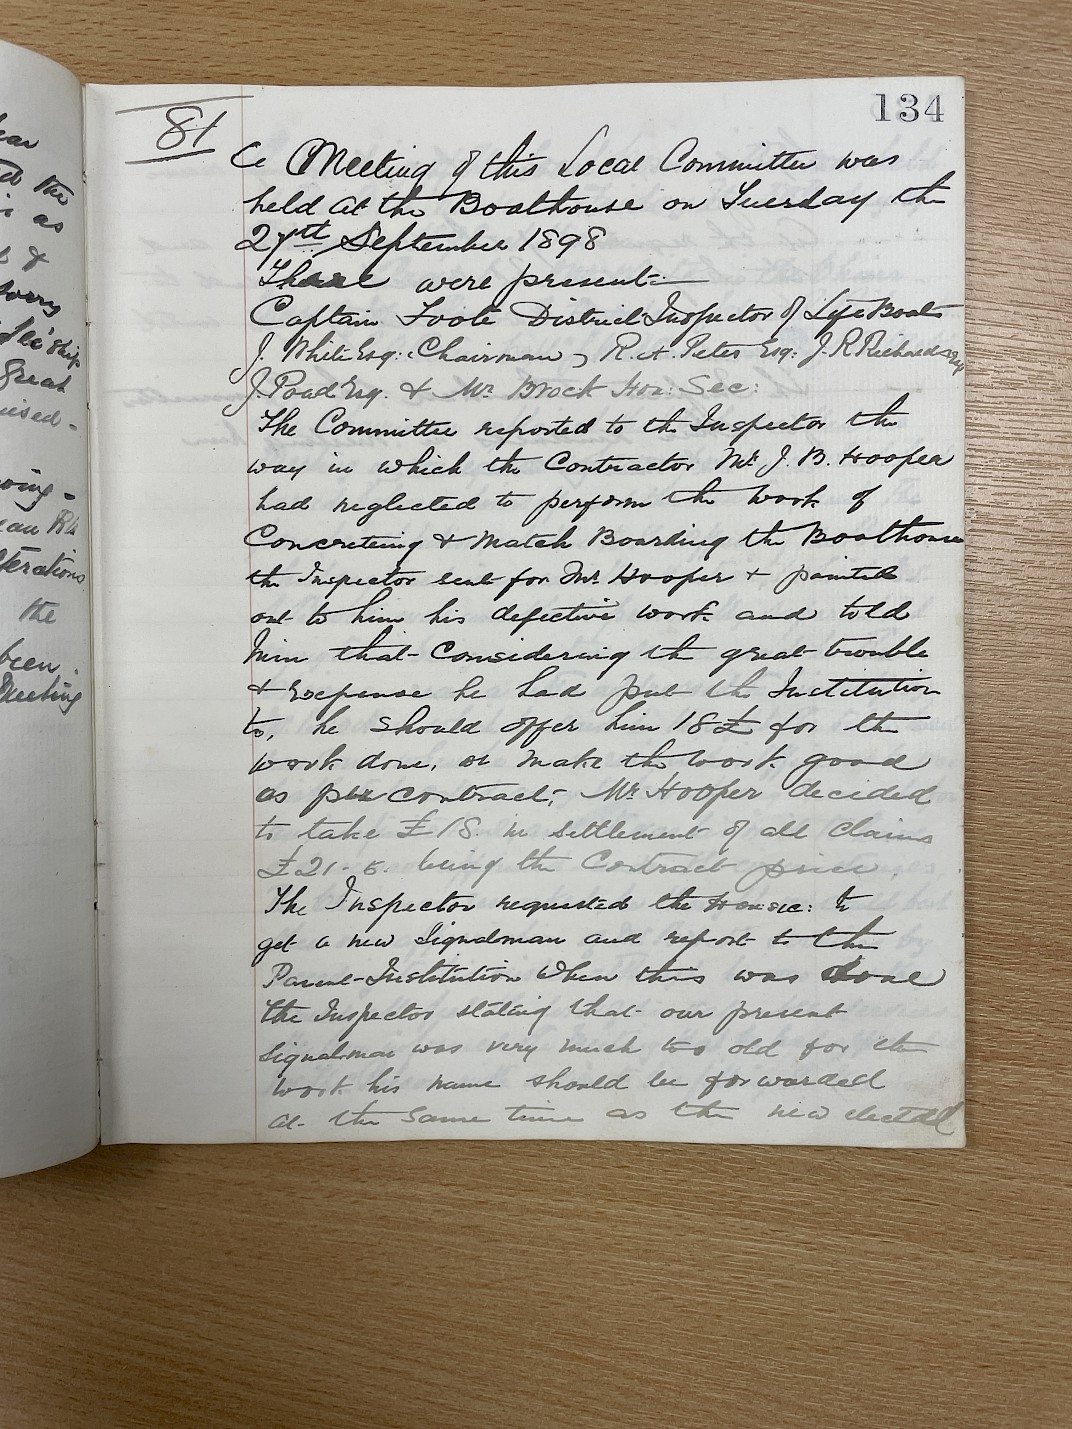 ear
the
is as
&
sorry
ship
Great
the
been
Meeting
134
81
a Meeting of this Local Committee was
held at the Boathouse on Tuesday the
27th September 1898
There were present:-
Captain Foote District Inspector of Life Boats
J. White Esq: Chairman, R. A. Peter Esq: J. R. Richards Esq
J. Poad Esq. & Mr Brock Hon: Sec:
The Committee reported to the Inspector the
way in which the Contractor Mr J. B. Hooper
had neglected to perform the work of
Concreteing & Match Boarding the Boathouse
the Inspector sent for Mr Hooper + pointed
out to him his defective work and told
him that Considering the great trouble
+ Expense he had put the Institution
to, he should offer him 18£ for the
work done, or make the work good
as per contract; Mr Hooper decided
to take £18. in settlement of all claims
£21-5. being the Contract price.
The Inspector requested the Hon sec: to
get a new Signalman and report to the
Parent-Institution when this was done
the Inspector stating that our present
Signalman was very much too old for the
work his name should be forwarded
at the same time as the new elected